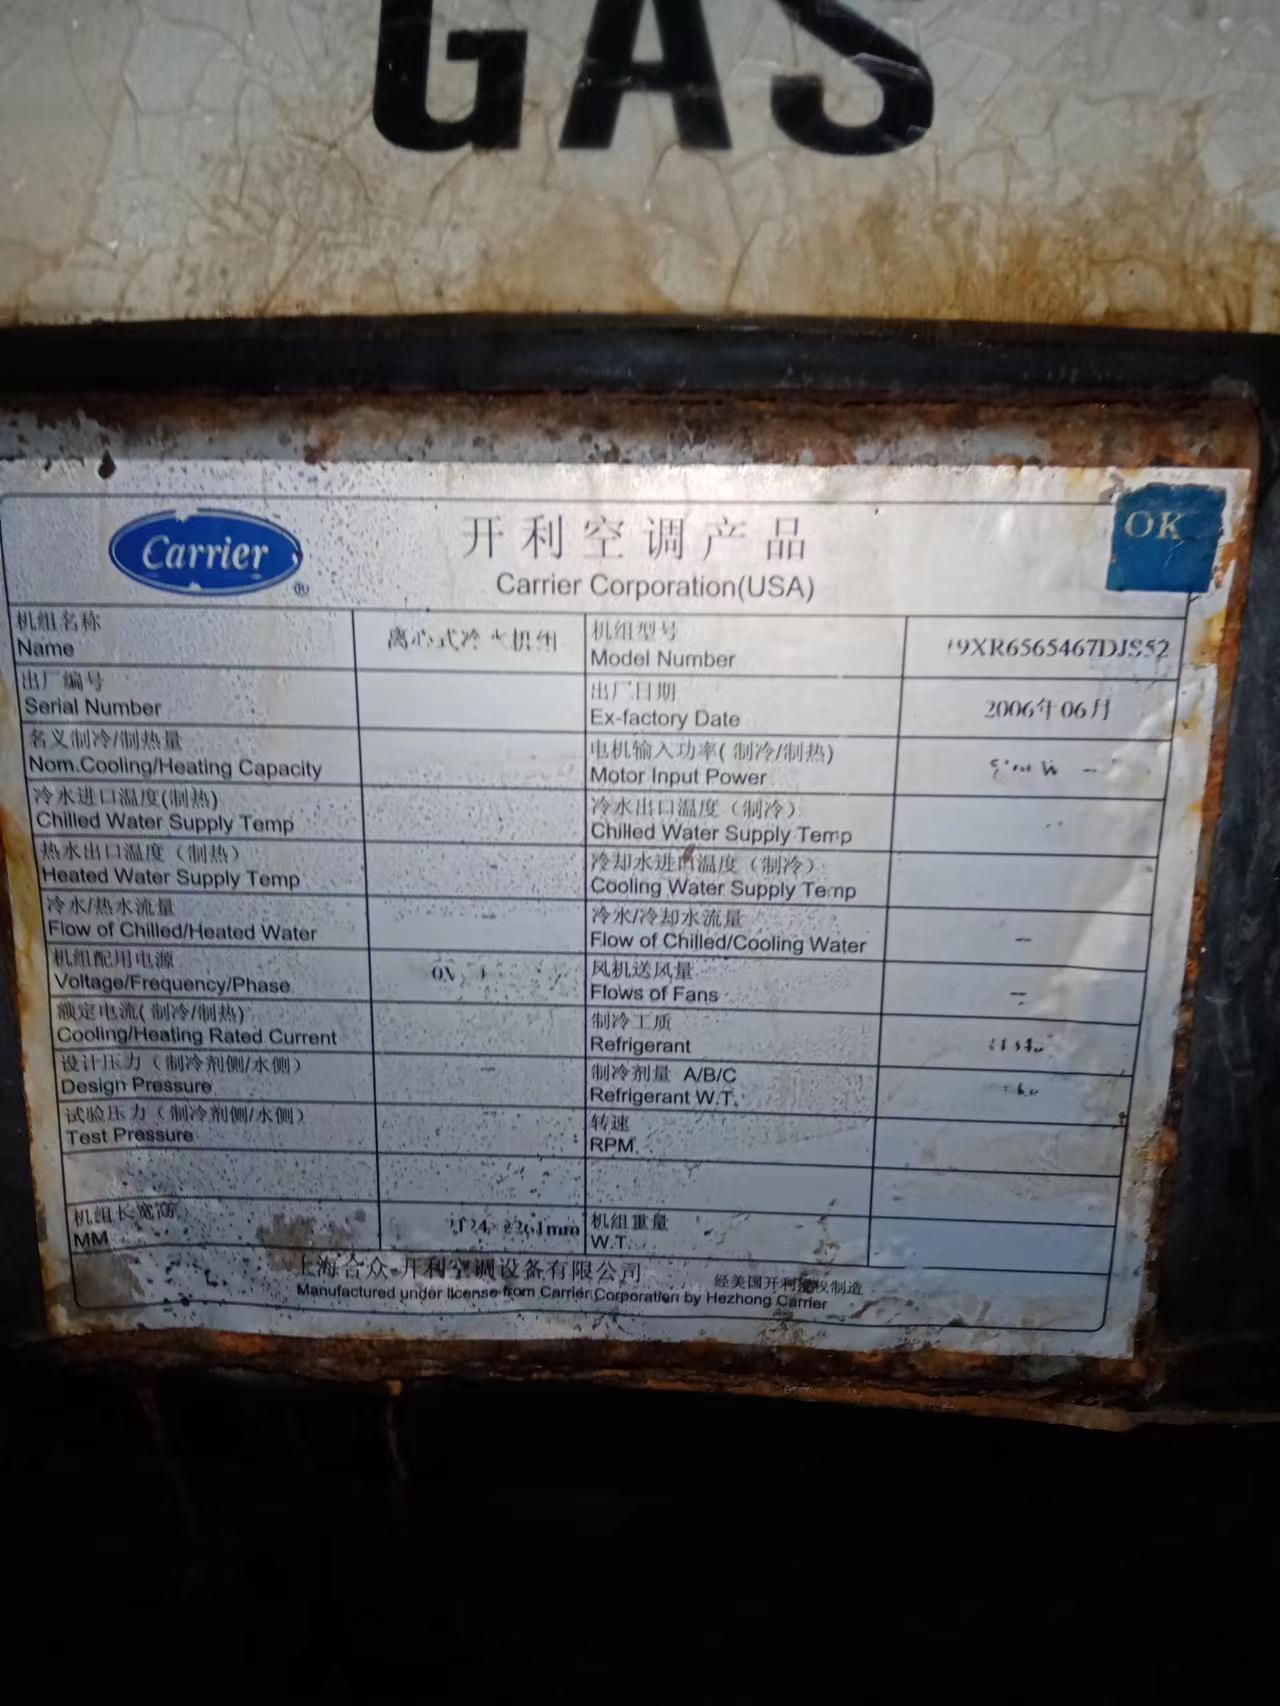 GAS
Carrier
®
开利空调产品
OK
Carrier Corporation(USA)
机组名称
Name
离心式冷水机组
机组型号
Model Number
19XR6565467DJS52
出厂编号
Serial Number
出厂日期
Ex-factory Date
2006年06月
名义制冷/制热量
Nom.Cooling/Heating Capacity
电机输入功率(制冷/制热)
Motor Input Power
冷水进口温度(制热)
Chilled Water Supply Temp
冷水出口温度（制冷）
Chilled Water Supply Temp
热水出口温度（制热）
Heated Water Supply Temp
冷却水进口温度（制冷）
Cooling Water Supply Temp
冷水/热水流量
Flow of Chilled/Heated Water
冷水/冷却水流量
Flow of Chilled/Cooling Water
机组配用电源
Voltage/Frequency/Phase
风机送风量
Flows of Fans
额定电流(制冷/制热)
Cooling/Heating Rated Current
制冷工质
Refrigerant
设计压力（制冷剂侧/水侧）
Design Pressure
制冷剂量 A/B/C
Refrigerant W.T.
试验压力（制冷剂侧/水侧）
Test Pressure
转速
RPM
机组长宽高
MM
机组重量
W.T.
上海合众-开利空调设备有限公司
经美国开利授权制造
Manufactured under license from Carrier Corporation by Hezhong Carrier